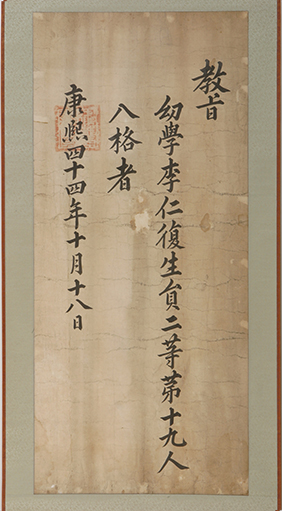 教旨
幼學李仁復生員二等第十九人
入格者
康熙四十四年十月十八日